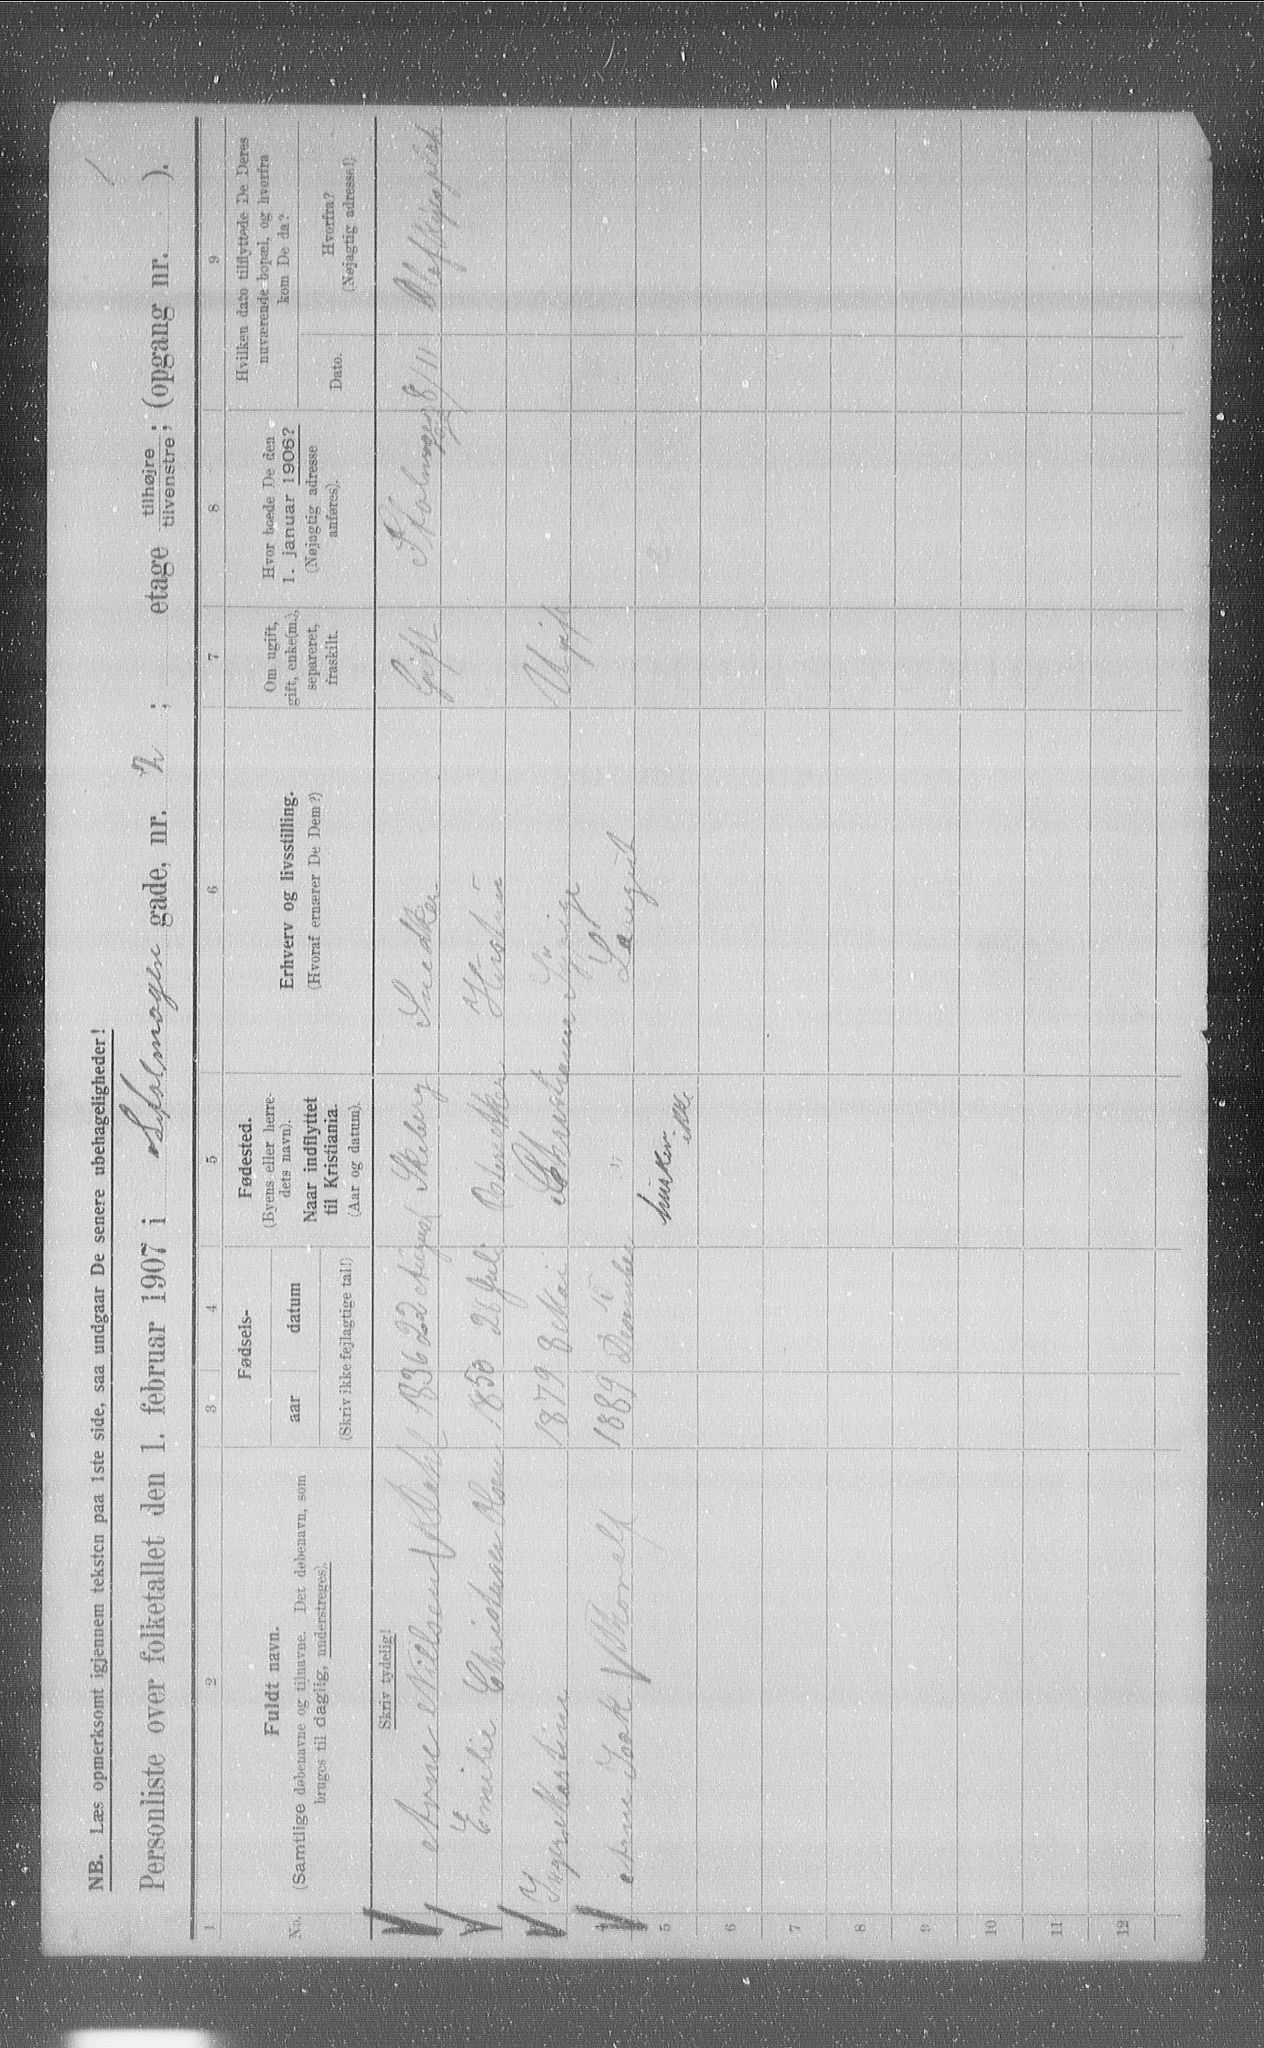 NB. Læs opmerksomt igjennem teksten paa 1ste side, saa undgaar De senere ubehageligheder!
Personliste over folketallet den 1. februar 1907 i gade, nr. 2 ; etage tilhøjre tilvenstre; (opgang nr. ).
1 2 3 4 5 6 7 8 9
No.
Fuldt navn.
(Samtlige døbenavne og tilnavne. Det døbenavn, som
bruges til daglig, understreges).
Fødsels-
aar datum
(Skriv ikke fejlagtige tal!)
Fødested.
(Byens eller herre-
dets navn).
Naar indflyttet
til Kristiania.
(Aar og datum).
Erhverv og livsstilling.
(Hvoraf ernærer De Dem?)
Om ugift,
gift, enke(m.),
separeret,
fraskilt.
Hvor boede De den
1. januar 1906?
(Nøjagtig adresse
anføres).
Hvilken dato tilflyttede De Deres
nuværende bopæl, og hvorfra
kom De da?
Dato.
Hvorfra?
(Nøjagtig adresse!)
Skriv tydelig!
Arne Nillsen Dahl 1836 22 August Skeberg Snedker Gift 8/11
Emilie Christensen Olsen 1850 26 Juli Hustru
Inger Martine 1879 8 Mai Ugift
Arne Isak Thoralf 1889 December "
ønsker ikke
5
6
7
8
9
10
11
12